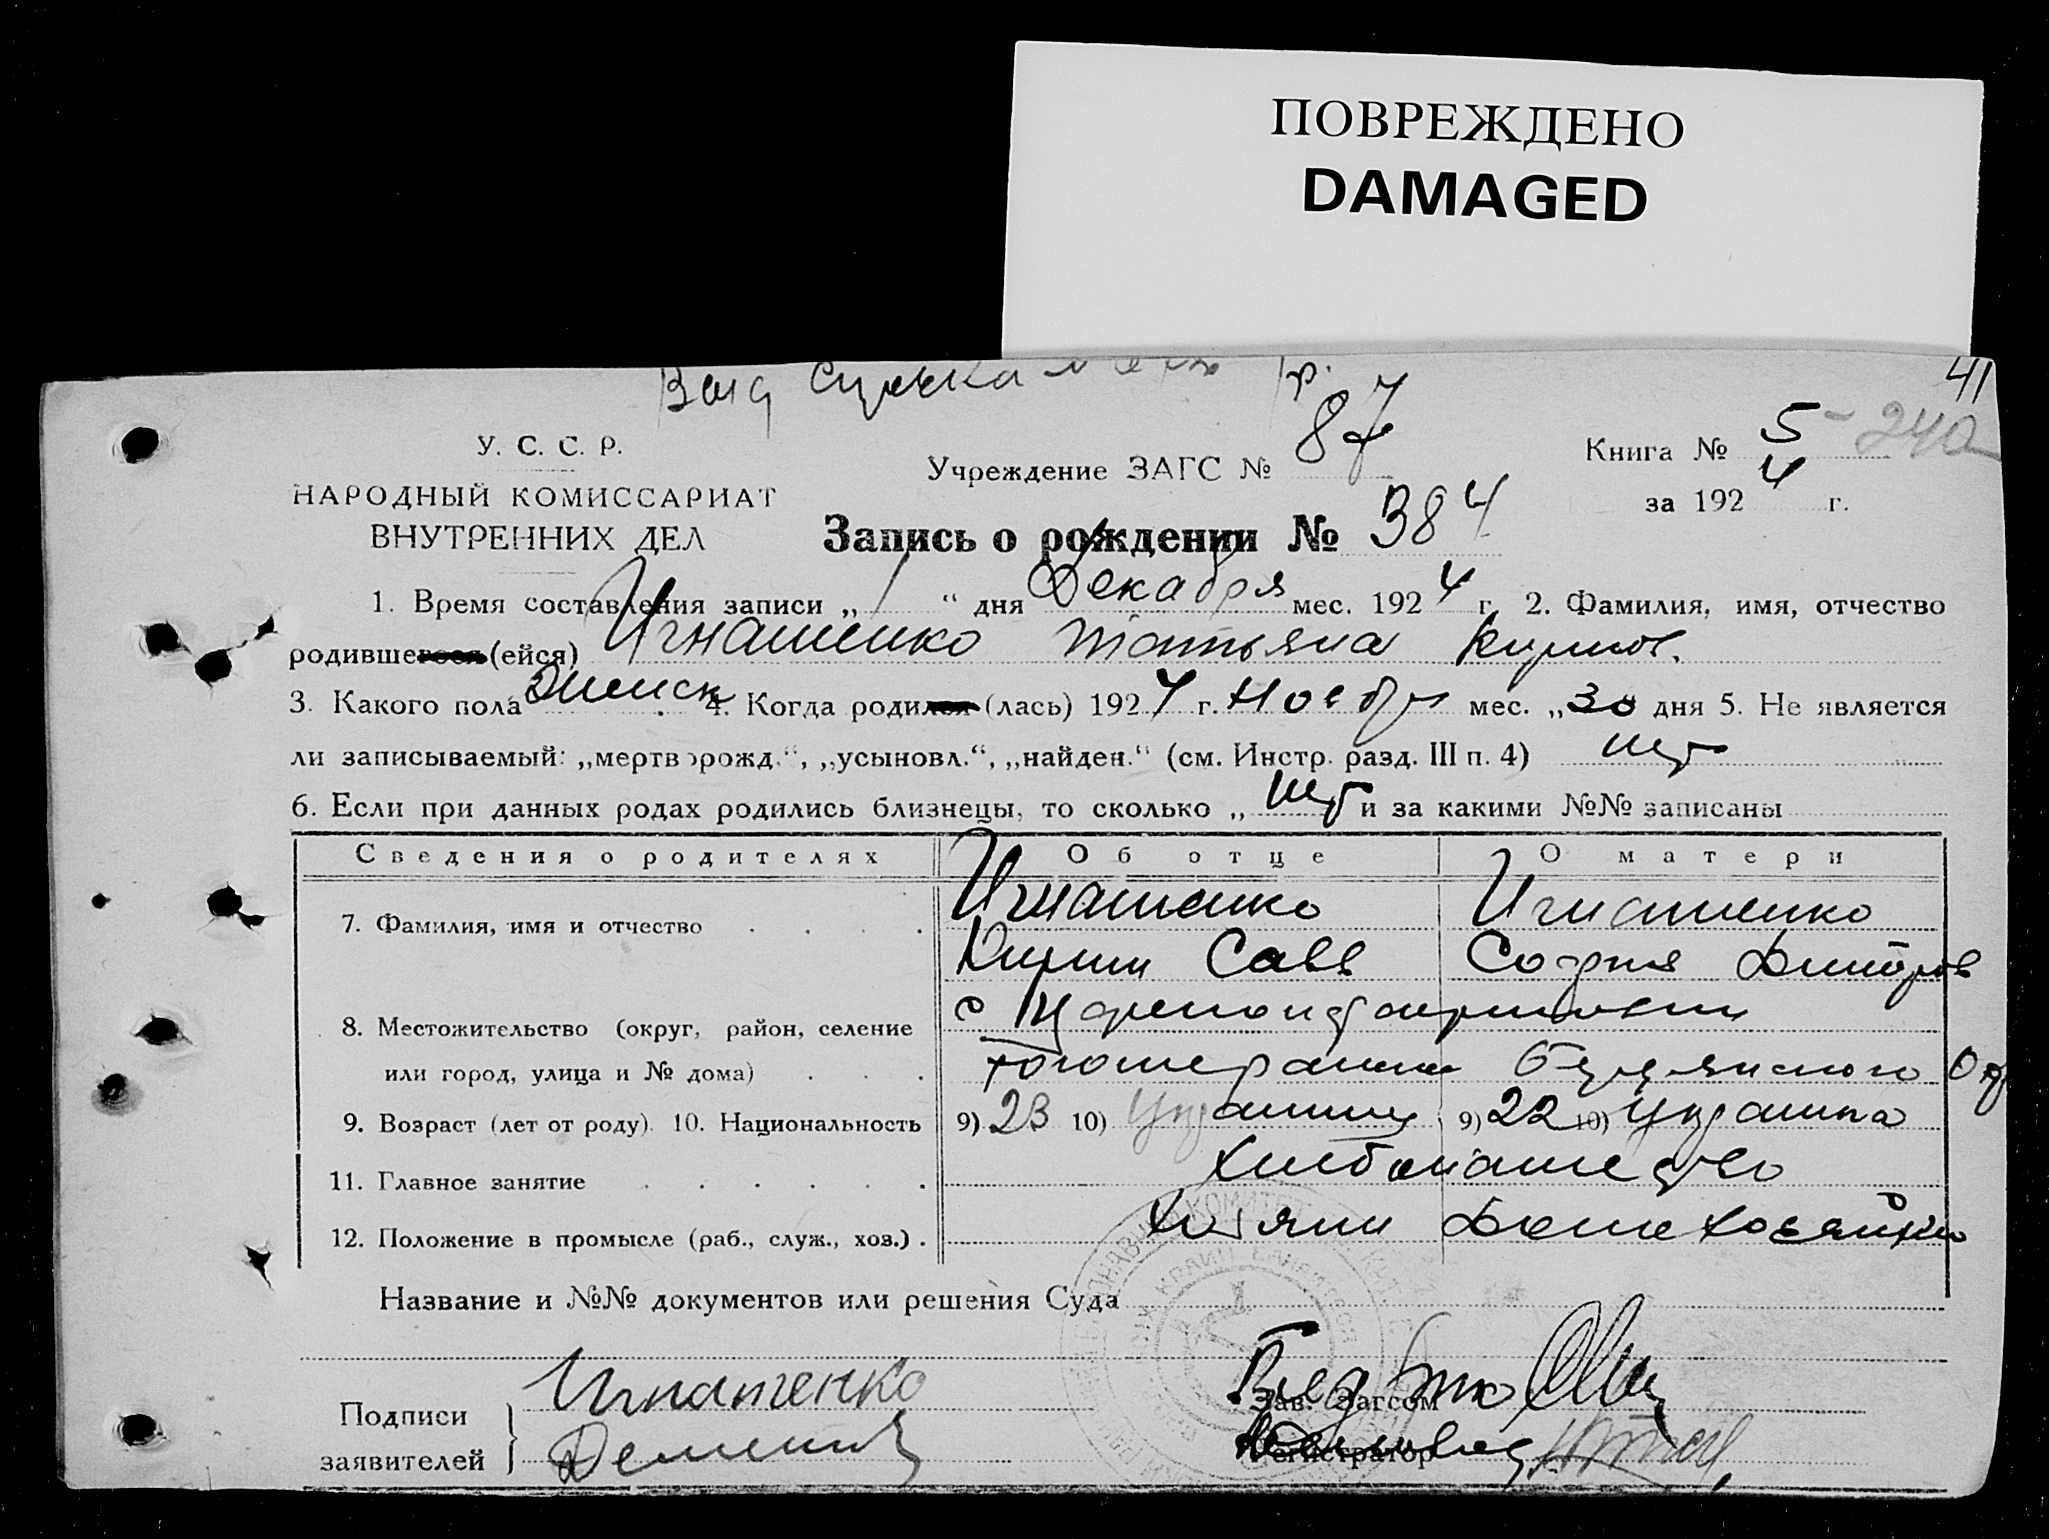 ПОВРЕЖДЕНО
DAMAGED
41
У. С. С. Р.
Учреждение ЗАГС № 87
Книга № 5 - 24а
НАРОДНЫЙ КОМИССАРИАТ
за 1924 г.
ВНУТРЕННИХ ДЕЛ
Запись о рождении № 384
1. Время составления записи „ 1 “ дня Декабря мес. 1924 г. 2. Фамилия, имя, отчество
родившегося (ейся) Игнатенко Татьяна Кирилов.
3. Какого пола Женск 4. Когда родился (лась) 1924 г. Ноебря мес. „30 дня 5. Не является
ли записываемый: „мертворожд.“, „усыновл.“, „найден.“ (см. Инстр. разд. III п. 4) нет
6. Если при данных родах родились близнецы, то сколько „ нет и за какими №№ записаны
Сведения о родителях Об отце О матери
7. Фамилия, имя и отчество Игнатенко Игнатенко
Кирил Савв София Дмитров
8. Местожительство (округ, район, селение с
или город, улица и № дома)
9. Возраст (лет от роду). 10. Национальность 9) 23 10) Украинец 9) 22 10) Украинка
11. Главное занятие Хлебопашество
12. Положение в промысле (раб., служ., хоз.) Хозяин Домохозяйка
Название и №№ документов или решения Суда
Подписи Игнатенко Зав. Загсом
заявителей Регистратор